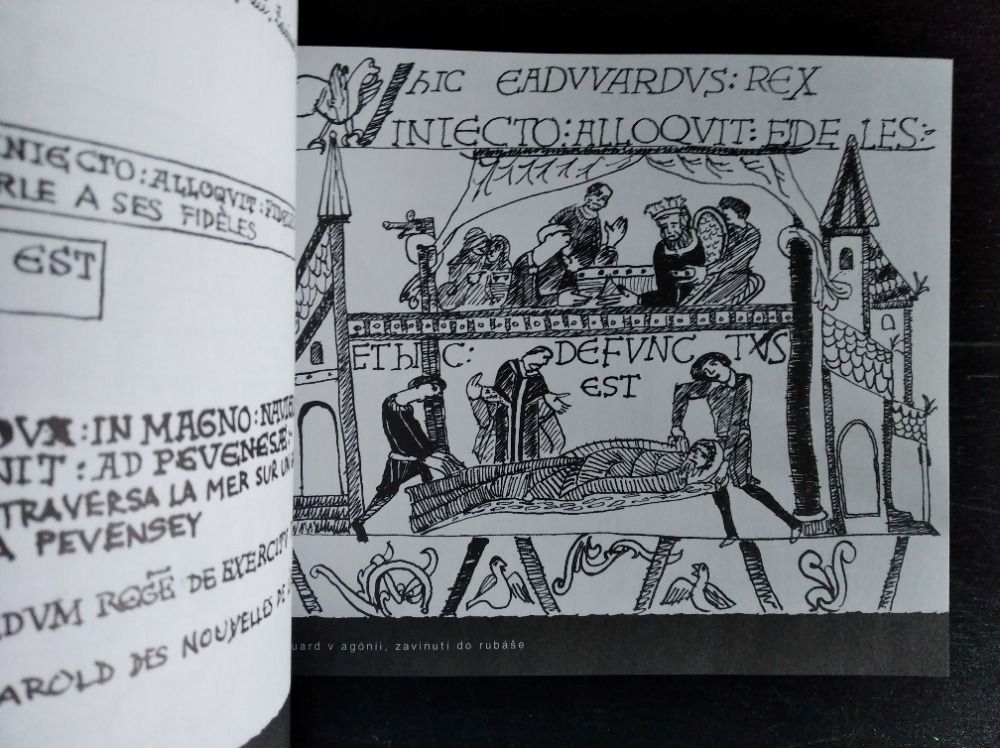 NIECTO:ALLOQVIT:FIDELI
RLE A SES FIDÈLES
EST
DVX:IN MAGNO:NAVIG
NIT:AD PEVENESÆ:
TRAVERSA LA MER SUR UN
A PEVENSEY
DVM ROGE DE EXERCITV
AROLD DES NOUVELLES DE
hIC EADVVARDVS: REX
INIECTO:ALLOQVIT: FIDELES:
EThIC: DEFVNCTVS
EST
uard v agónii, zavinutí do rubáše